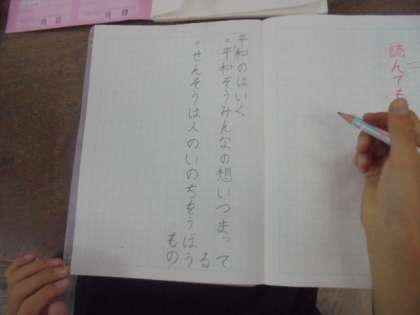 平和のはいく
・平和ぞうみんなの想いつまって
る
・せんそうは人のいのちをうばう
もの
読んでも